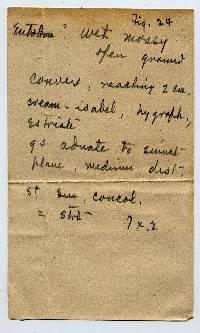 Fig. 24
Entoloma? wet mossy
open ground
convex, reaching 2 cm.
cream-isabel, hygroph.,
estriate
gs adnate to sinuate
plane, medium dist.
st concol.
7 x .2